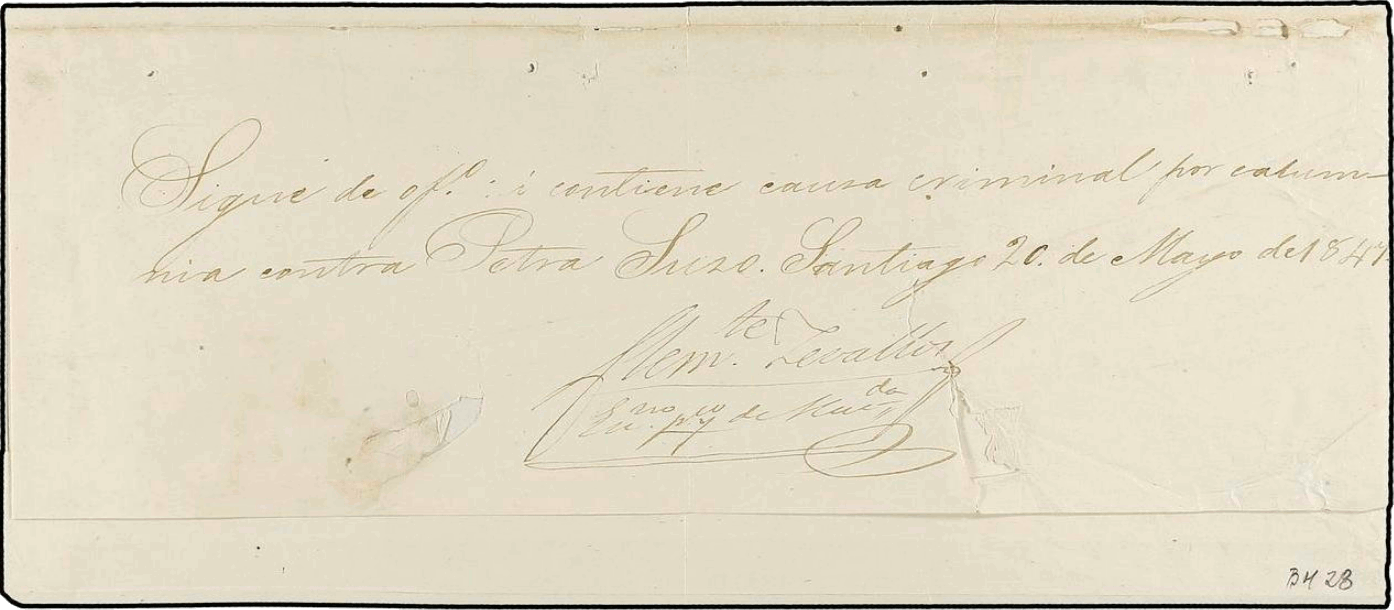 Sigue de of.º i contiene causa criminal por calum-
nia contra Petra Suzo. Santiago 20. de Mayo de 1847
Clem.te Zevallos
Es.no p.co de
B4 28